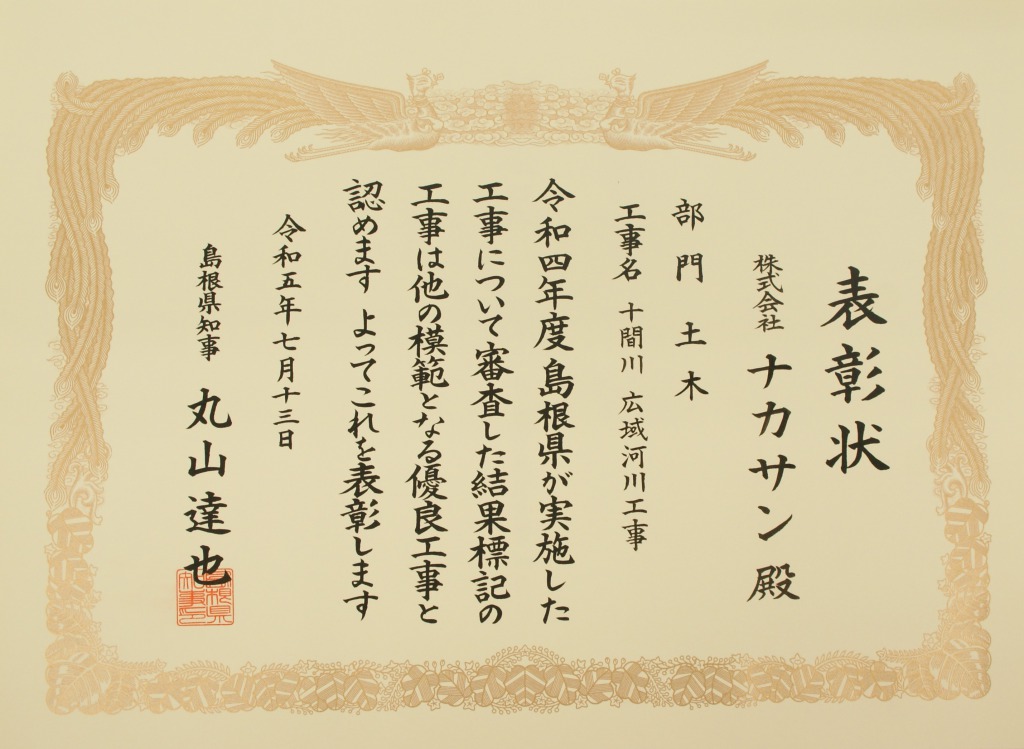 表彰状
株式会社 ナカサン 殿
部門 土木
工事名 十間川 広域河川工事
令和四年度島根県が実施した
工事について審査した結果標記の
工事は他の模範となる優良工事と
認めます よってこれを表彰します
令和五年七月十三日
島根県知事 丸山達也